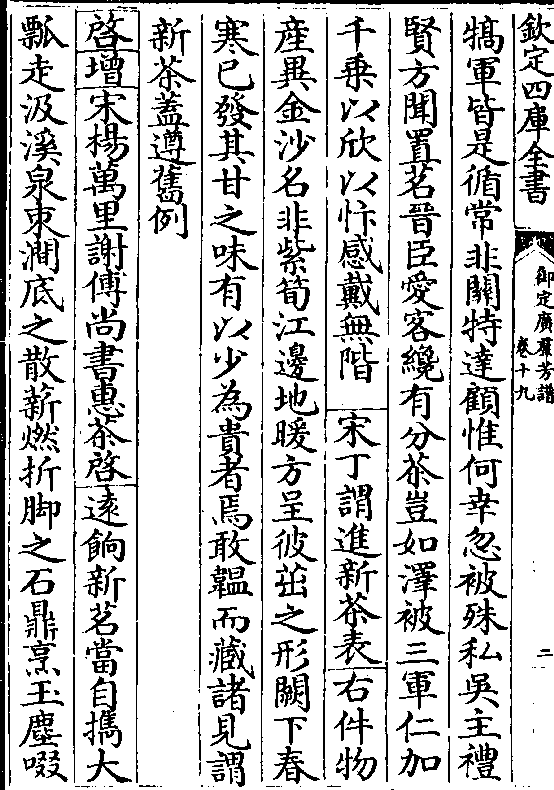 欽定四庫全書
御定廣羣芳譜
卷十九
二
犒軍皆是循常非關特達顧惟何幸忽被殊私吳主禮
賢方聞置茗晉臣愛客纔有分茶豈如澤被三軍仁加
千乗以欣以忭感戴無階　宋丁謂進新茶表右件物
産異金沙名非紫筍江邊地暖方呈彼茁之形闕下春
寒已發其甘之味有以少為貴者焉敢韞而藏諸見謂
新茶蓋遵舊例
啓增宋楊萬里謝傅尚書惠茶啓逺餉新茗當自擕大
瓢走汲溪泉束澗底之散薪燃折脚之石鼎烹玉塵啜